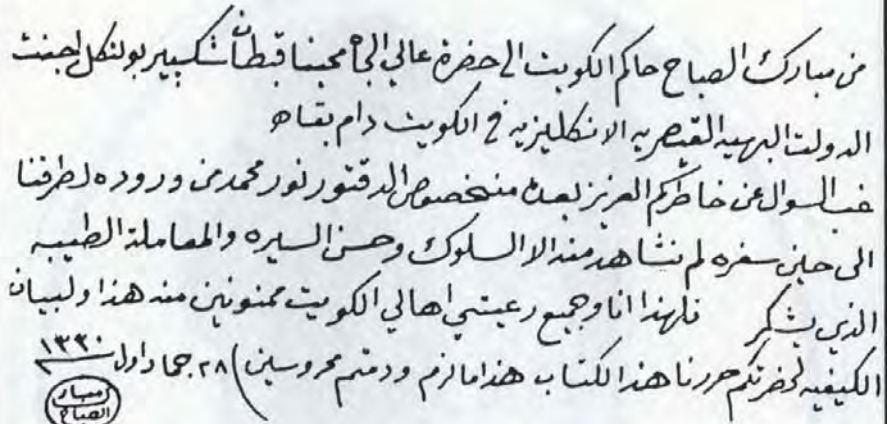 من مبارك الصباح حاكم الكويت الى حضرة عالي الجاه محبنا قبطان شكسبير بولتكل اجنت
الدولت البهيه القيصريه الانكليزيه في الكويت دام بقاه
غب السوال عن خاطركم العزيز بعده منخصوص الدقتور نور محمد من وروده لطرفنا
الى حين سفره لم نشاهد منه الا السلوك وحسن السيره والمعاملة الطيبه
الذي يشكر فلهذا انا وجميع رعيتي اهالي الكويت ممنونين منه هذا ولبيان
الكيفيه لحضرتكم حررنا هذا الكتاب هذا مالزم ودمتم محروسين ٢٨ جماد اول ١٣٣٠
مبارك
الصباح